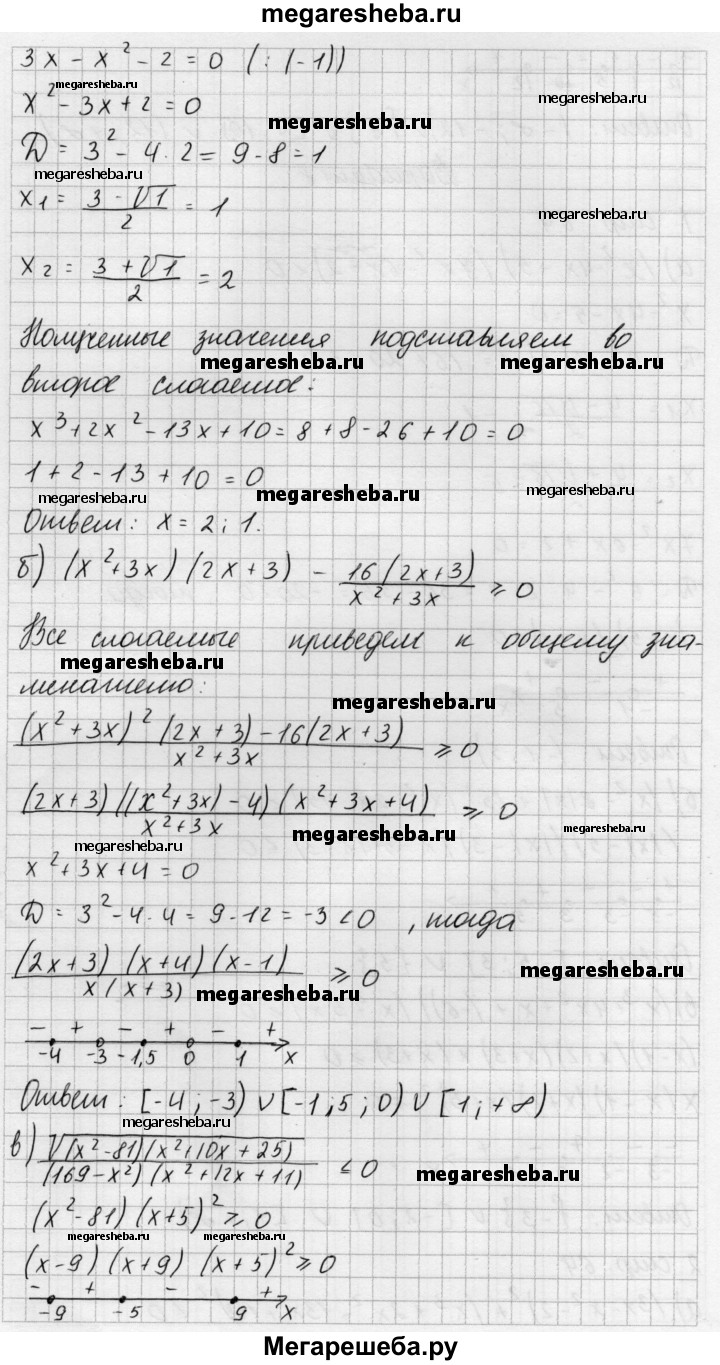 megaresheba.ru
3x - x² - 2 = 0 (: (-1))
megaresheba.ru
x² - 3x + 2 = 0
megaresheba.ru
megaresheba.ru
D = 3² - 4 · 2 = 9 - 8 = 1
x₁ = (3 - √1)/2 = 1
megaresheba.ru
x₂ = (3 + √1)/2 = 2
Полученные значения подставляем во
megaresheba.ru megaresheba.ru
второе слагаемое:
x³ + 2x² - 13x + 10 = 8 + 8 - 26 + 10 = 0
1 + 2 - 13 + 10 = 0
megaresheba.ru megaresheba.ru megaresheba.ru
Ответ: x = 2; 1.
б) (x² + 3x) (2x + 3) - 16(2x+3)/(x² + 3x) ≥ 0
Все слагаемые приведем к общему зна-
megaresheba.ru
менателю:
megaresheba.ru
((x² + 3x)² (2x + 3) - 16(2x + 3))/(x² + 3x) ≥ 0
((2x+3) ((x² + 3x) - 4) (x² + 3x + 4))/(x² + 3x) ≥ 0
megaresheba.ru megaresheba.ru megaresheba.ru
x² + 3x + 4 = 0
D = 3² - 4 · 4 = 9 - 12 = -3 < 0 , тогда
((2x+3) (x+4) (x-1))/(x(x+3)) ≥ 0
megaresheba.ru
megaresheba.ru
- + - + - +
-4 -3 -1,5 0 1 x
Ответ: [-4; -3) ∪ [-1;5; 0) ∪ [1; +∞)
megaresheba.ru
в) √((x² - 81)(x² + 10x + 25))/((169 - x²) (x² + 12x + 11)) ≤ 0
megaresheba.ru
(x² - 81) (x+5)² ≥ 0
megaresheba.ru megaresheba.ru
(x-9) (x+9) (x+5)² ≥ 0
- + - +
-9 -5 9 x
Мегарешеба.ру